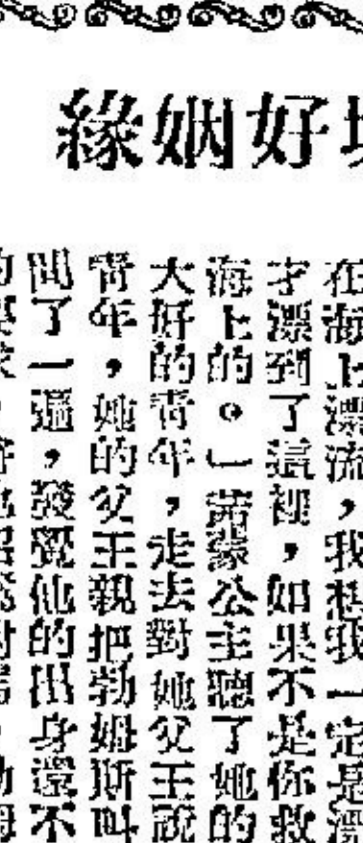 好姻緣
在海上漂流，我想我一定是漂
才漂到了這裡，如果不是你救
海上的。」公主聽了她的
大好的青年，走去對她父王說
青年，她的父王親把勃姆斯叫
問了一遍，發覺他的出身還不